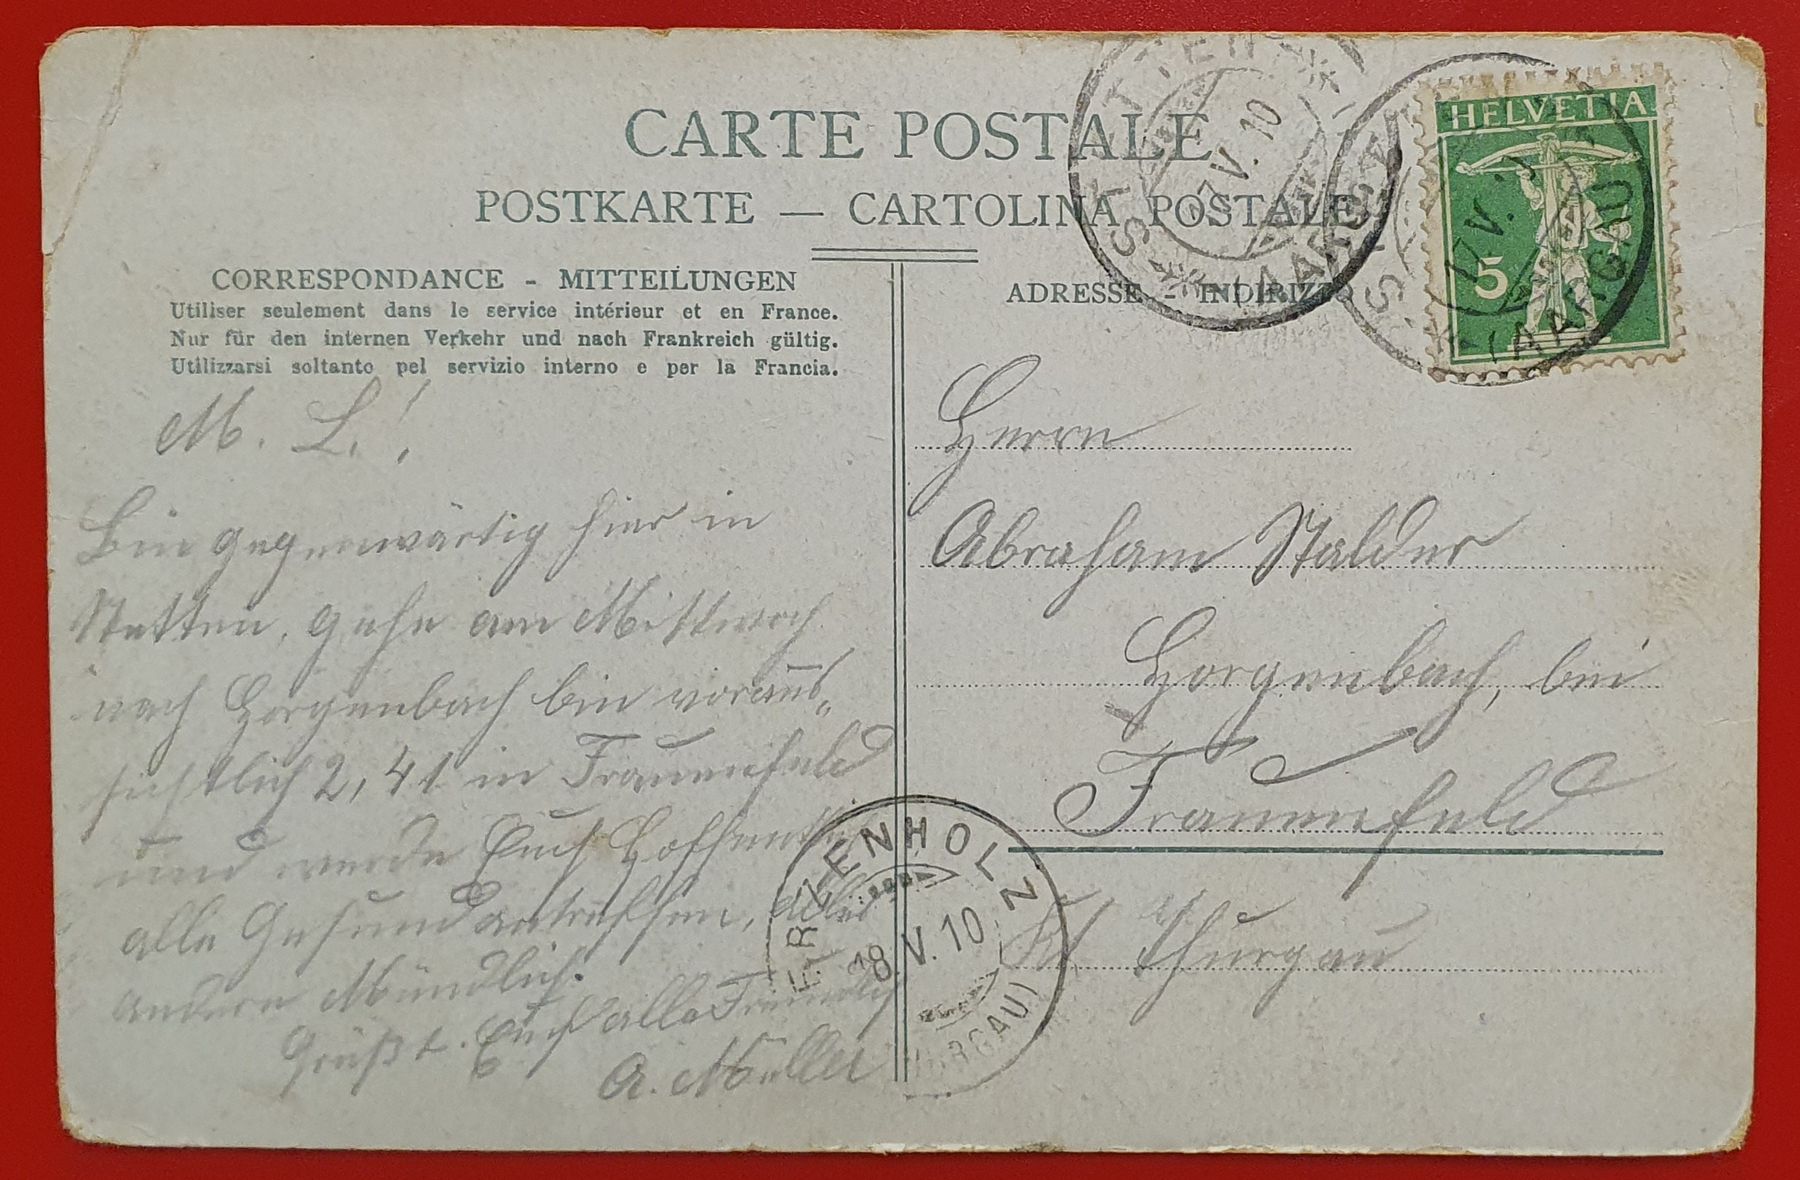 CARTE POSTALE
POSTKARTE — CARTOLINA POSTALE
CORRESPONDANCE - MITTEILUNGEN
Utiliser seulement dans le service intérieur et en France.
Nur für den internen Verkehr und nach Frankreich gültig.
Utilizzarsi soltanto pel servizio interno e per la Francia.
M. L.!
Bin gegenwärtig hier in
Stetten, gehe am Mittwoch
nach Horgenbach bin voraus„
sichtlich 2,41 in Frauenfeld
und werde Euch hoffentlich
alle Gesund antreffen, alles
andere Mündlich.
Grüßt Euch alle Freundlich
A. Müller
ADRESSE - INDIRIZZO
Herrn
Abraham Stalder
Horgenbach, bei
Frauenfeld
Kt Thurgau
HELVETIA
5
STETTEN
17.V.10
(AARGAU)
STETTEN
17.V.10
(AARGAU)
ERZENHOLZ
18.V.10
(THURGAU)